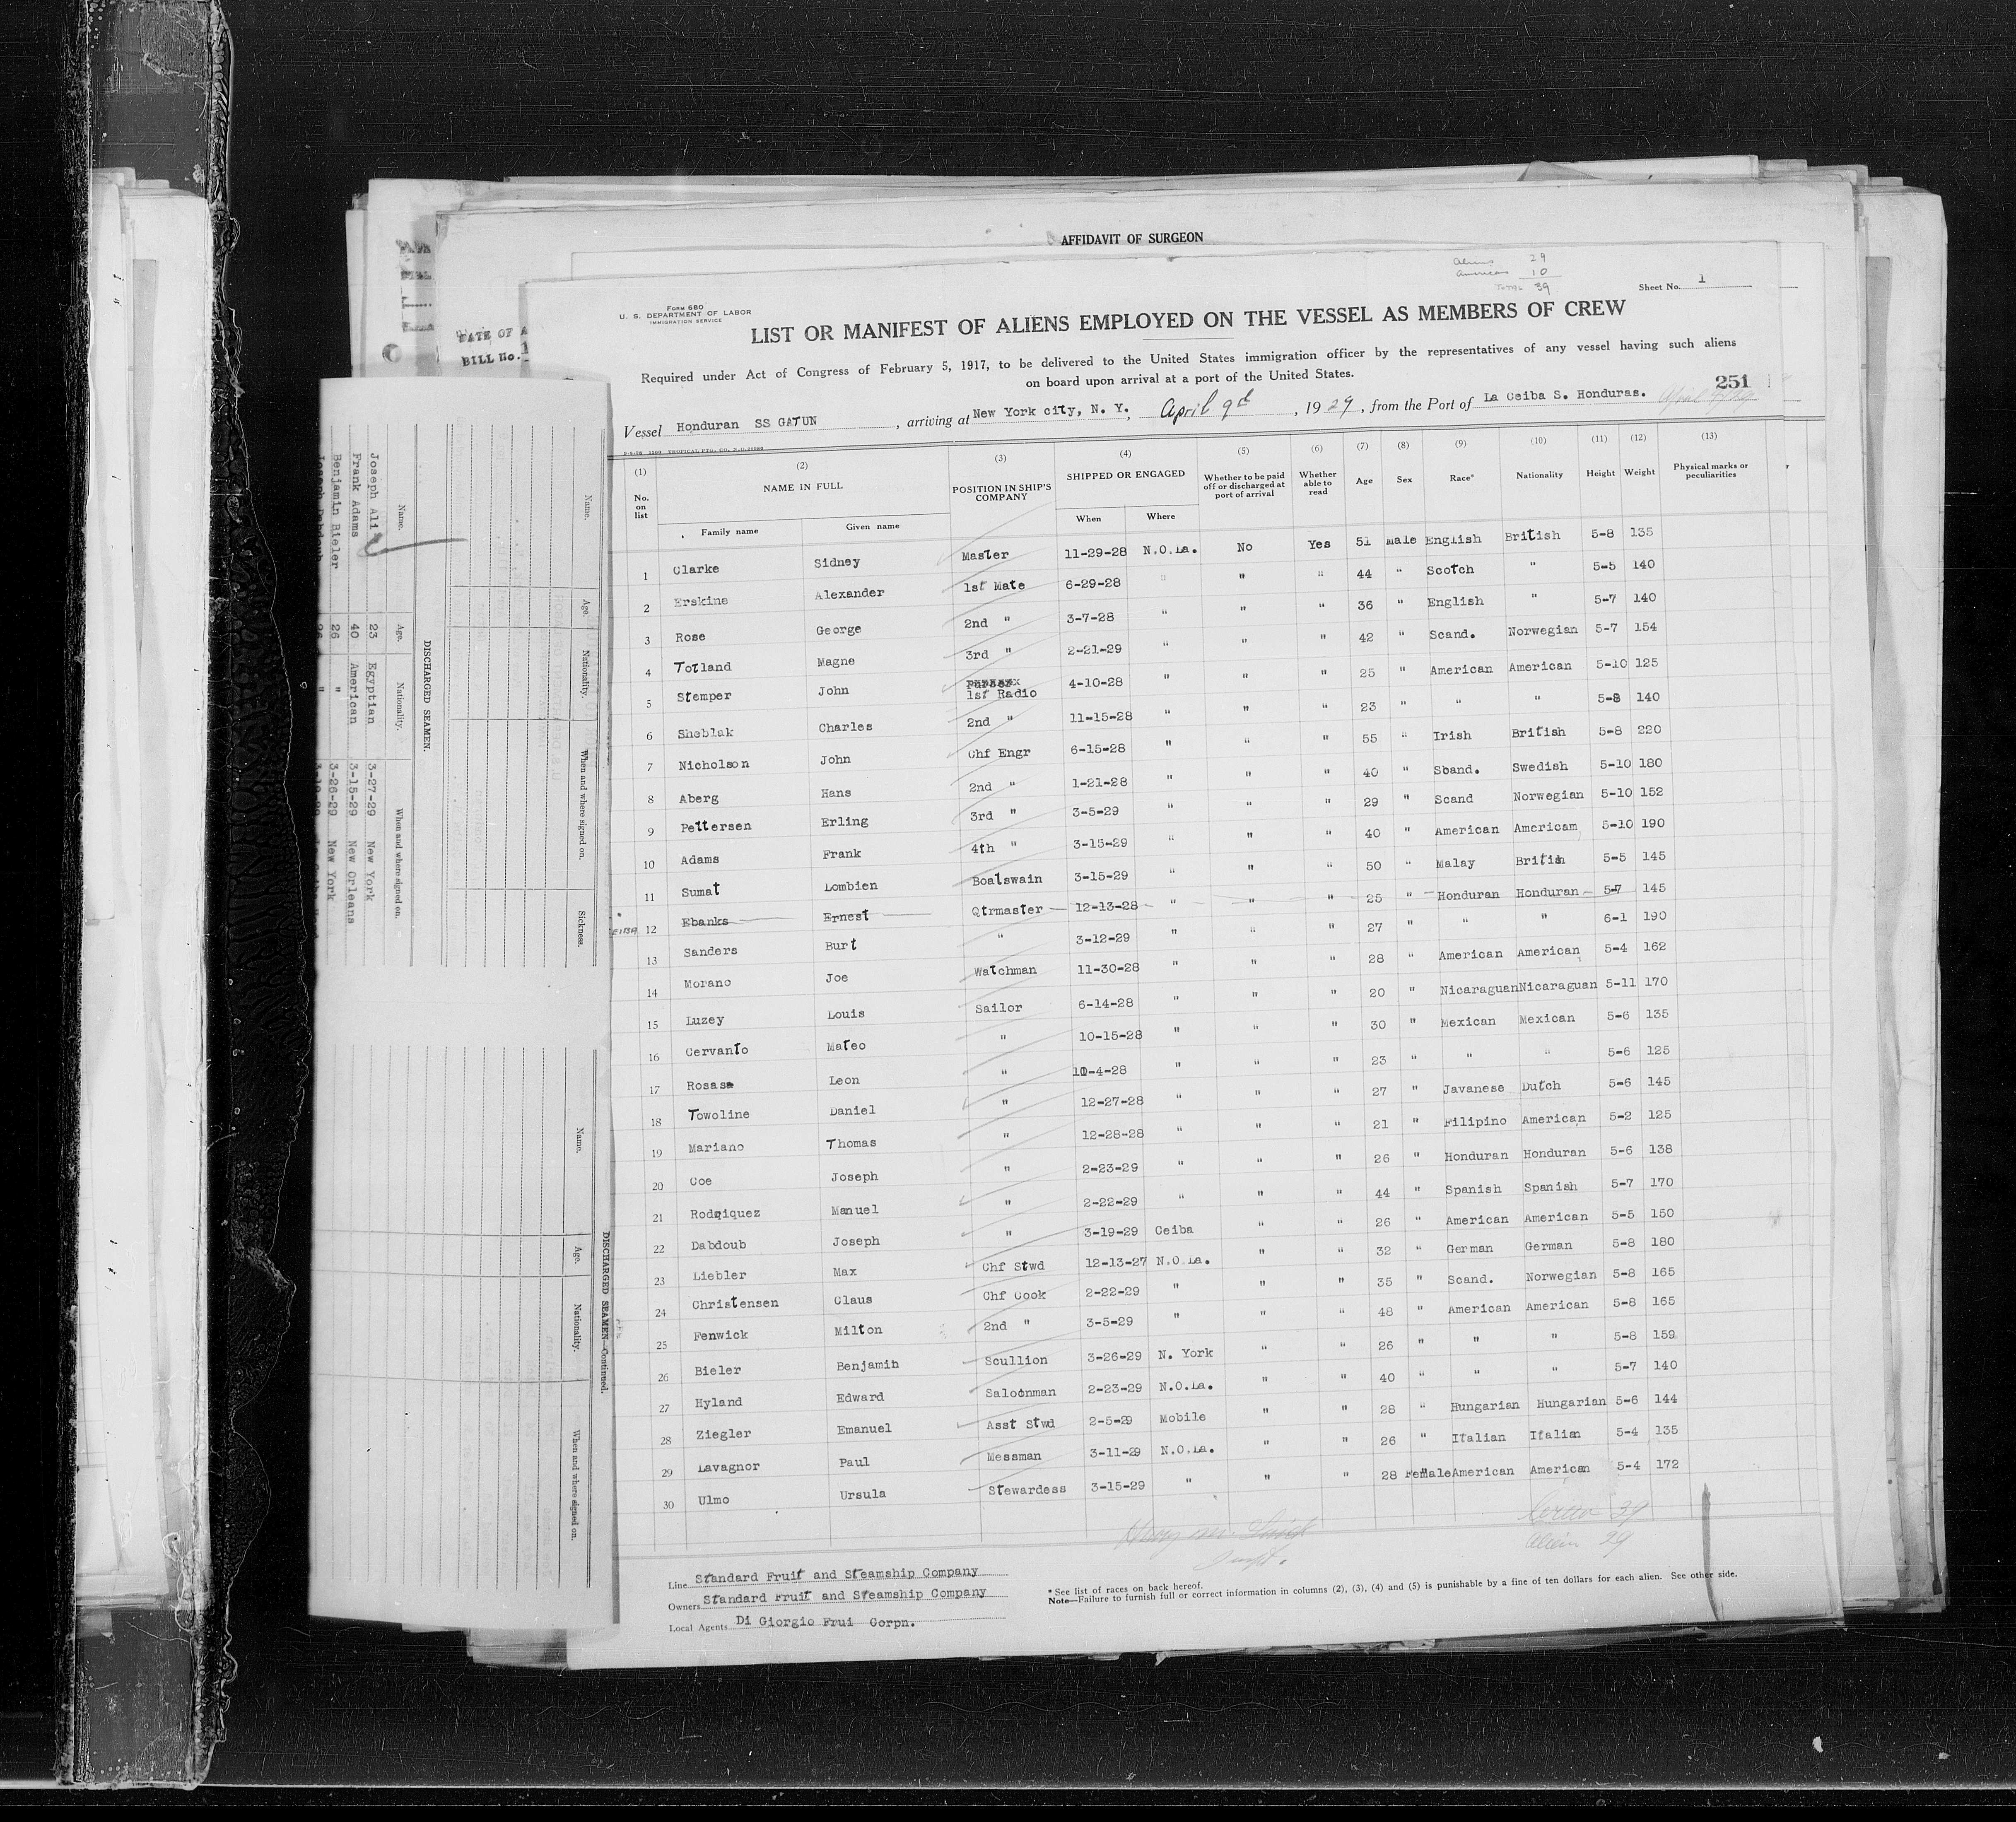 AFFIDAVIT OF SURGEON
Aliens 29
American 10
39
Sheet No. 1
FORM 680
U. S. DEPARTMENT OF LABOR
IMMIGRATION SERVICE
LIST OR MANIFEST OF ALIENS EMPLOYED ON THE VESSEL AS MEMBERS OF CREW
Required under Act of Congress of February 5, 1917, to be delivered to the United States immigration officer by the representatives of any vessel having such aliens
on board upon arrival at a port of the United States.
251
Vessel Honduran SS GATUN, arriving at New York city, N. Y., April 9th, 1929, from the Port of La Ceiba S. Honduras.
(1) (2) (3) (4) (5) (6) (7) (8) (9) (10) (11) (12) (13)
No. on list NAME IN FULL POSITION IN SHIP'S COMPANY SHIPPED OR ENGAGED Whether to be paid off or discharged at port of arrival Whether able to read Age Sex Race* Nationality Height Weight Physical marks or peculiarities
Family name Given name When Where
1 Clarke Sidney Master 11-29-28 N.O.La. No Yes 51 Male English British 5-8 135
2 Erskine Alexander 1st Mate 6-29-28 " " " 44 " Scotch " 5-5 140
3 Rose George 2nd " 3-7-28 " " " 36 " English " 5-7 140
4 Totland Magne 3rd " 2-21-29 " " " 42 " Scand. Norwegian 5-7 154
5 Stemper John 1st Radio 4-10-28 " " " 25 " American American 5-10 125
6 Sheblak Charles 2nd " 11-15-28 " " " 23 " " " 5-8 140
7 Nicholson John Chf Engr 6-15-28 " " " 55 " Irish British 5-8 220
8 Aberg Hans 2nd " 1-21-28 " " " 40 " Scand. Swedish 5-10 180
9 Pettersen Erling 3rd " 3-5-29 " " " 29 " Scand Norwegian 5-10 152
10 Adams Frank 4th " 3-15-29 " " " 40 " American Americam 5-10 190
11 Sumat Lombien Boatswain 3-15-29 " " " 50 " Malay British 5-5 145
12 Ebanks Ernest Qtrmaster 12-13-28 " " " 25 " Honduran Honduran 5-7 145
13 Sanders Burt " 3-12-29 " " " 27 " " " 6-1 190
14 Morano Joe Watchman 11-30-28 " " " 28 " American American 5-4 162
15 Luzey Louis Sailor 6-14-28 " " " 20 " Nicaraguan Nicaraguan 5-11 170
16 Cervanto Mateo " 10-15-28 " " " 30 " Mexican Mexican 5-6 135
17 Rosasa Leon " 10-4-28 " " " 23 " " " 5-6 125
18 Towoline Daniel " 12-27-28 " " " 27 " Javanese Dutch 5-6 145
19 Mariano Thomas " 12-28-28 " " " 21 " Filipino American 5-2 125
20 Coe Joseph " 2-23-29 " " " 26 " Honduran Honduran 5-6 138
21 Rodriquez Manuel " 2-22-29 " " " 44 " Spanish Spanish 5-7 170
22 Dabdoub Joseph " 3-19-29 Ceiba " " 26 " American American 5-5 150
23 Liebler Max Chf Stwd 12-13-27 N.O.La. " " 32 " German German 5-8 180
24 Christensen Claus Chf Cook 2-22-29 " " " 35 " Scand. Norwegian 5-8 165
25 Fenwick Milton 2nd " 3-5-29 " " " 48 " American American 5-8 165
26 Bieler Benjamin Scullion 3-26-29 N. York " " 26 " " " 5-8 159
27 Hyland Edward Saloonman 2-23-29 N.O.La. " " 40 " " " 5-7 140
28 Ziegler Emanuel Asst Stwd 2-5-29 Mobile " " 28 " Hungarian Hungarian 5-6 144
29 Lavagnor Paul Messman 3-11-29 N.O.La. " " 26 " Italian Italian 5-4 135
30 Ulmo Ursula Stewardess 3-15-29 " " " 28 Female American American 5-4 172
39
Alien 29
Line Standard Fruit and Steamship Company
Owners Standard Fruit and Steamship Company
Local Agents Di Giorgio Frui Corpn.
*See list of races on back hereof.
Note—Failure to furnish full or correct information in columns (2), (3), (4) and (5) is punishable by a fine of ten dollars for each alien. See other side.
BILL No.
Name. Age. Nationality. When and where signed on. Sickness.
DISCHARGED SEAMEN.
Name. Age. Nationality. When and where signed on.
Joseph Ali 23 Egyptian 3-27-29 New York
Frank Adams 40 American 3-15-29 New Orleans
Benjamin Bieler 26 " 3-26-29 New York
DISCHARGED SEAMEN—Continued.
Name. Age. Nationality. When and where signed on.